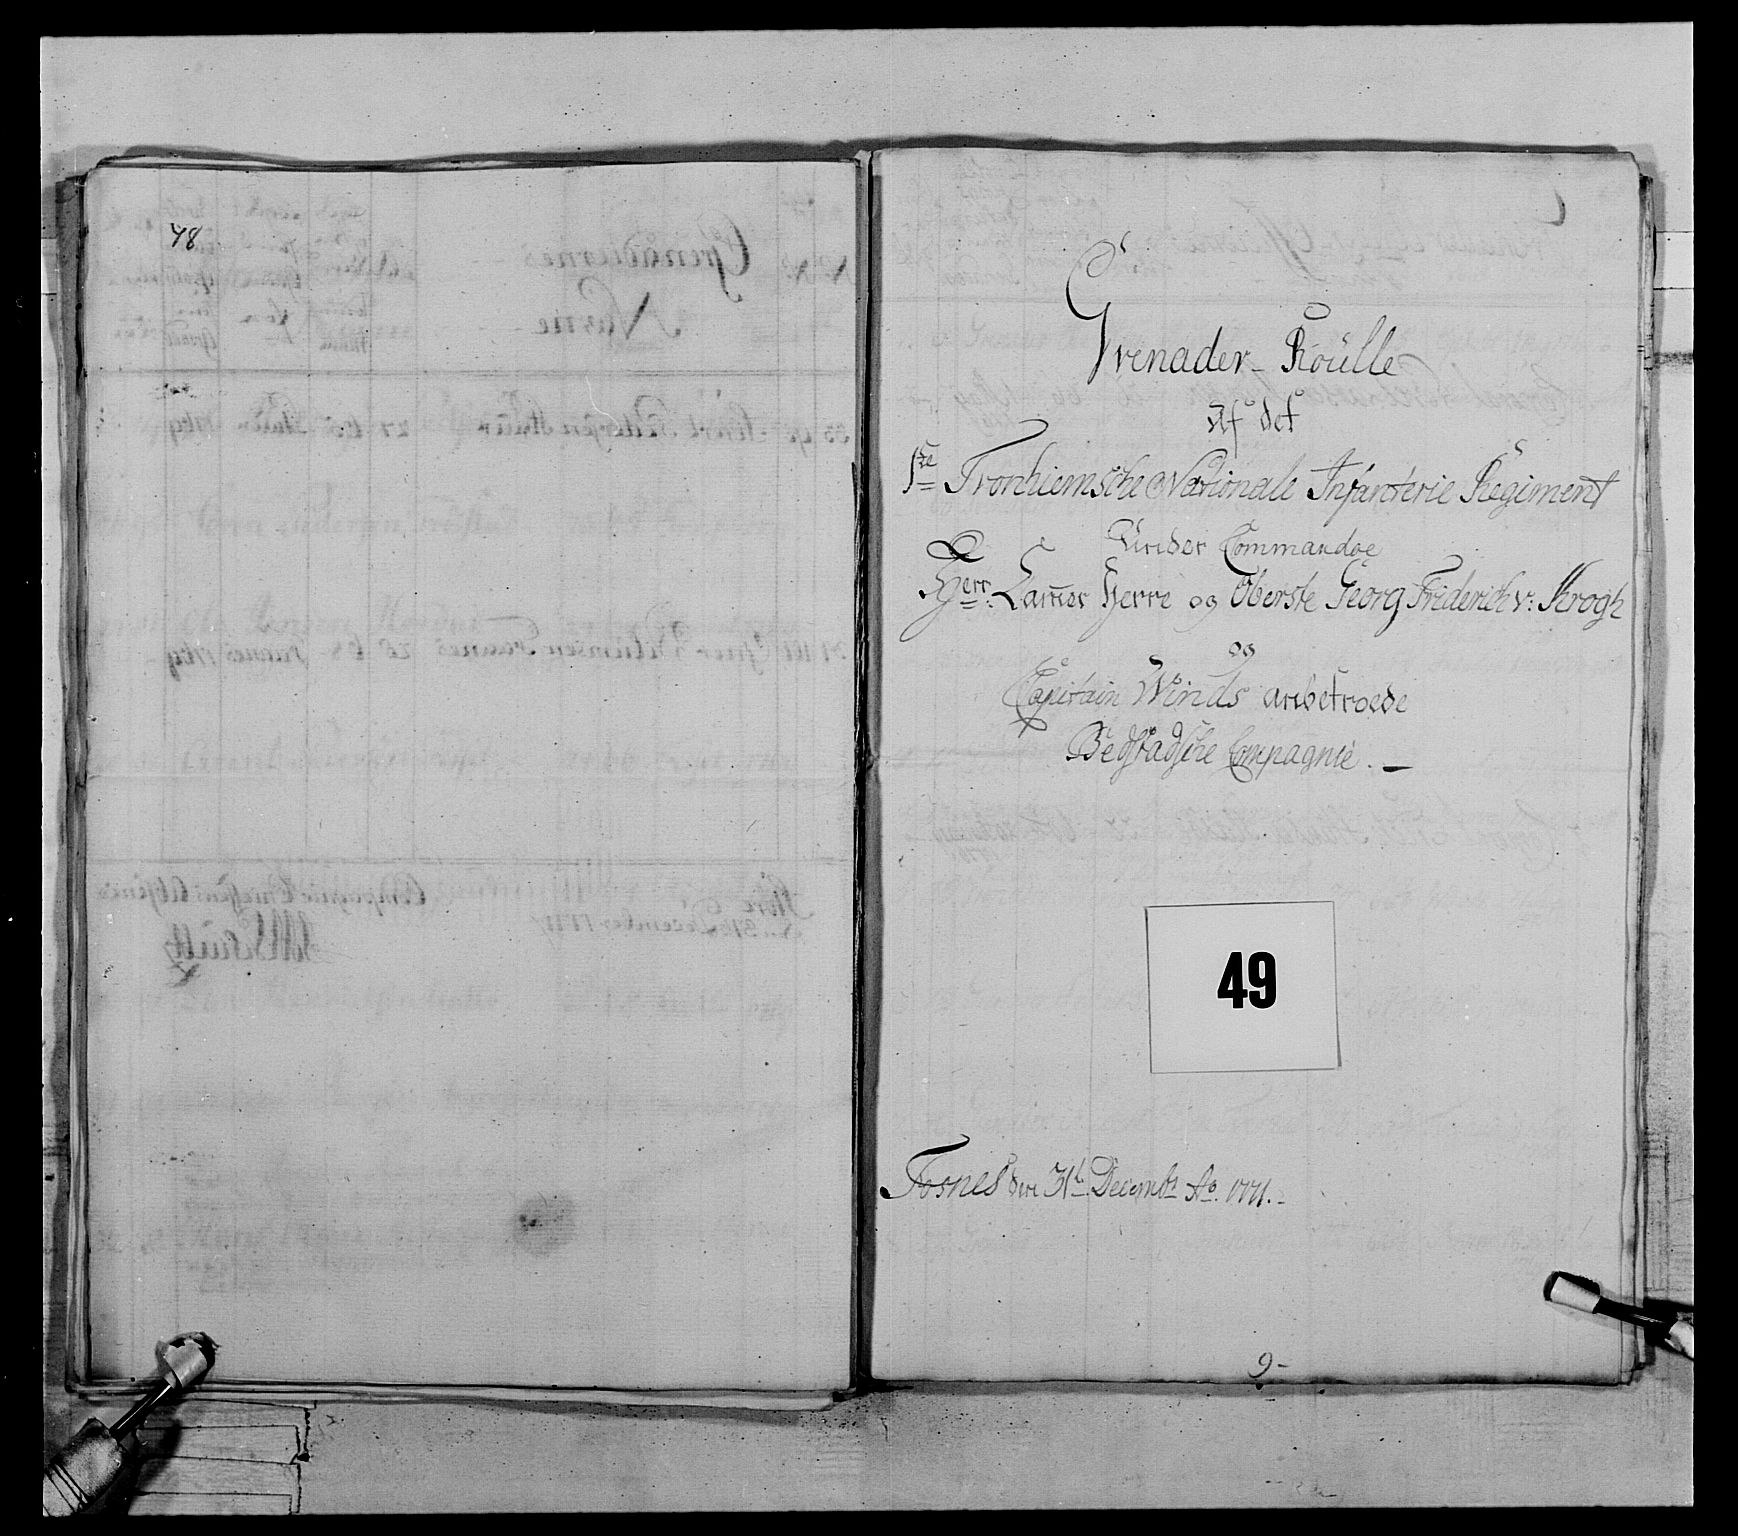 48
Grenader- Roülle
Af det
1ste Tronhiemsche Nationale Infanterie Regiment
Under Commandoe
Herr Cammer Herre og Oberste Georg Friderich v: Krogh
og
Capitain Winds anbetroede
Bedstadsche Compagnie. -
49
Fosnes den 31te Decembr Ao. 1771. -
9-